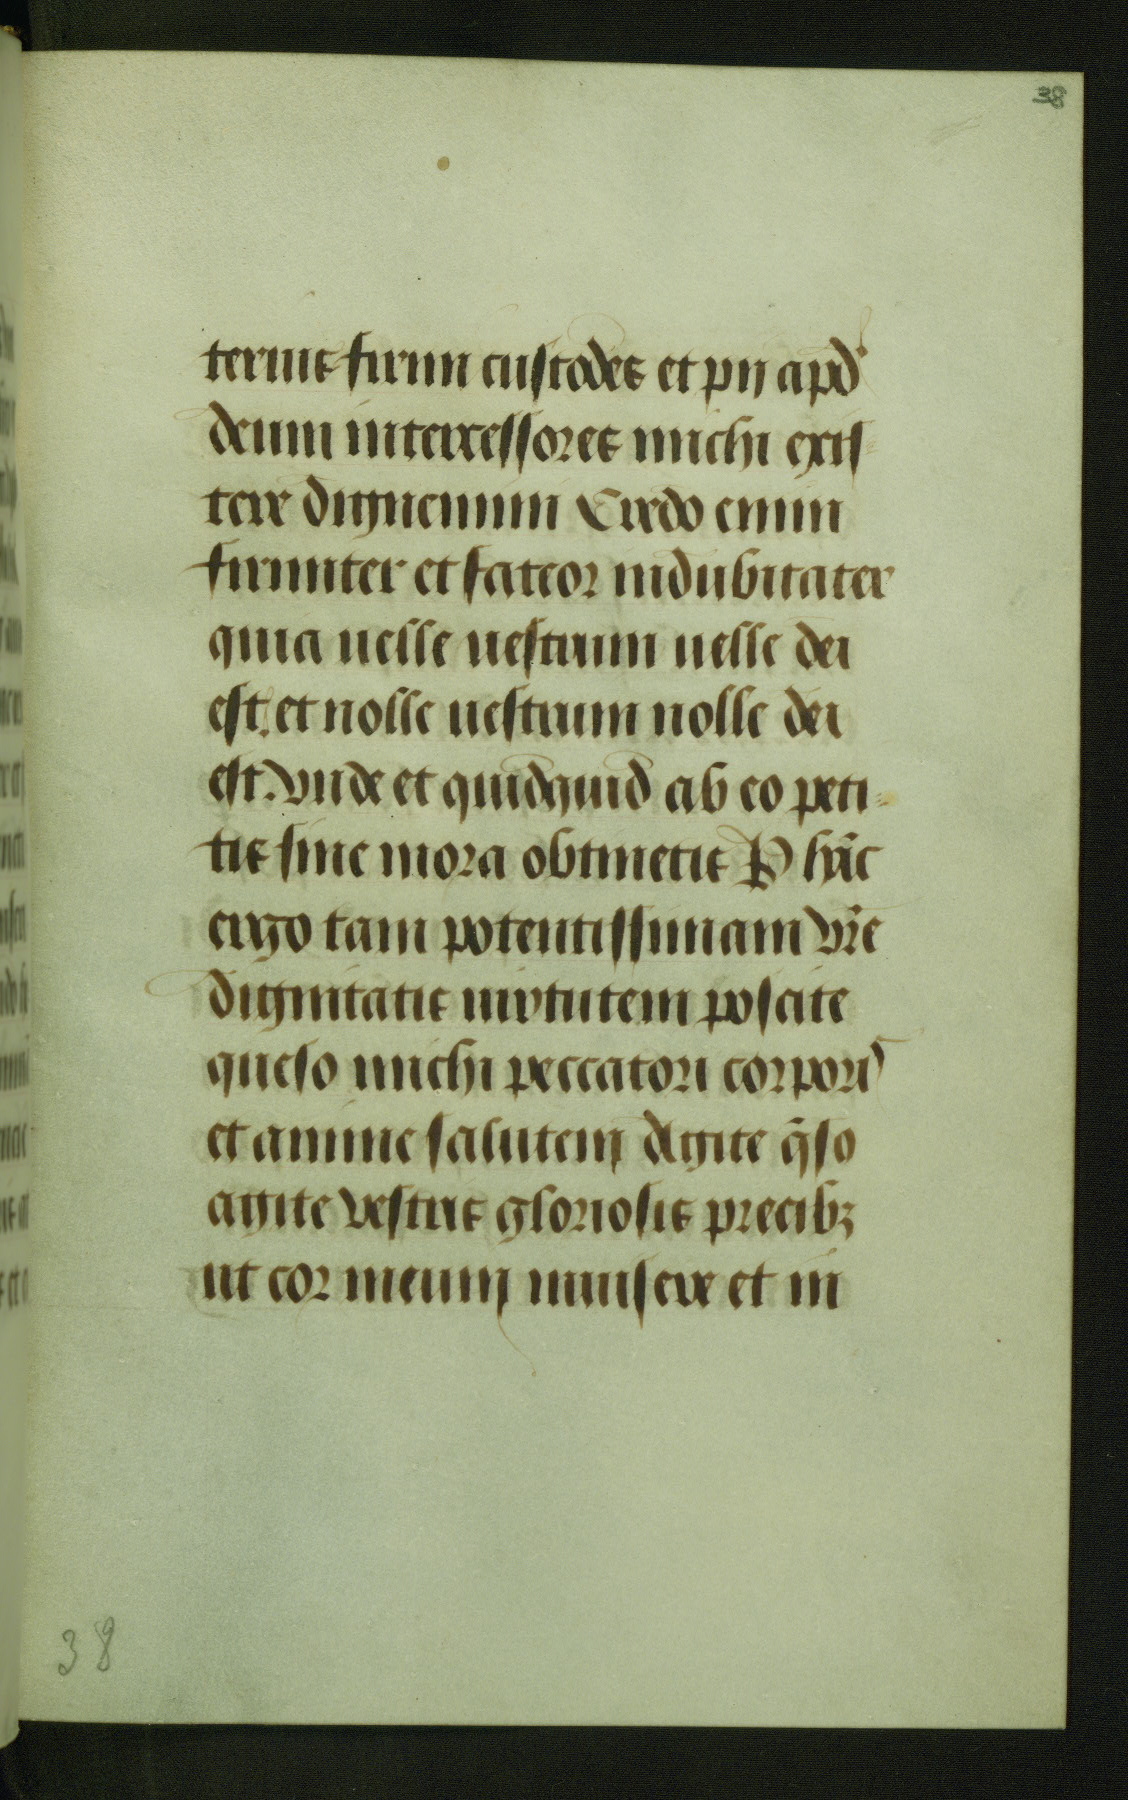 38
terius firmi custodes et pij apd'
deum intercessores michi exis-
tere dignemini Credo enim
firmiter et fateor indubitater
quia uelle uestrum uelle dei
est. et nolle uestrum nolle dei
est. Vnde et quidquid ab eo peti-
tis sine mora obtinetis P hāc
ergo tam potentissimam vr̄e
dignitatis uirtutem poscite
queso michi peccatori corporis
et anime salutem Agite q̄so
agite vestris gloriosis precibꝫ
ut cor meum misere et in
38